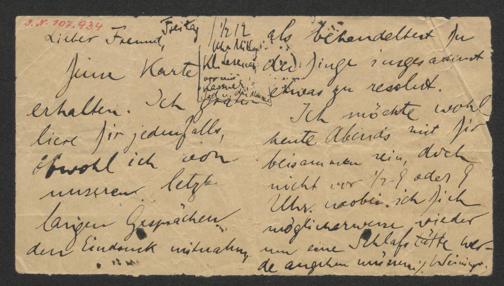 I.N. 107.934
Freitag
Lieber Freund,
Deine Karte
erhalten. Ich gratu-
liere Dir jedenfalls,
obwohl ich von
unseren letzt-
langen Gesprächen
den Eindruck mitnahm,
als behandeltest Du
die Dinge insgesammt
etwas zu resolut.
Ich möchte wohl
heute Abends mit Dir
beisammen sein, doch
nicht vor 1/2 9 oder 9
Uhr. wobei ich Dich
möglicherweise wieder
um eine Schlafstätte wer-
de angehen müssen.